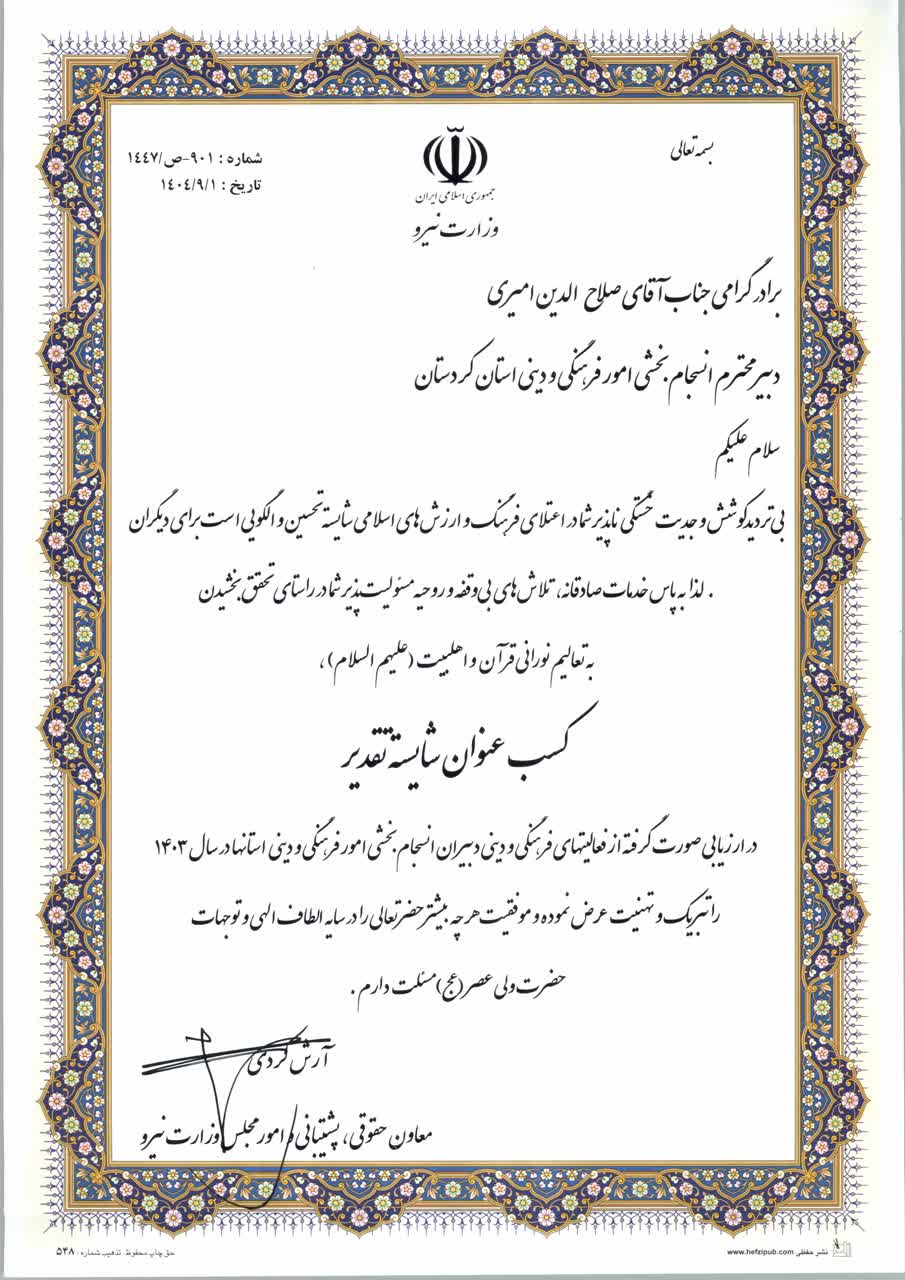 بسمه تعالی
شماره : ۹۰۱-ص/۱٤٤۷
تاریخ : ۱٤۰٤/۹/۱
جمهوری اسلامی ایران
وزارت نیرو
برادر گرامی جناب آقای صلاح الدین امیری
دبیر محترم انسجام بخشی امور فرهنگی و دینی استان کردستان
سلام علیکم
بی تردید کوشش و جدیت خستگی ناپذیر شما در اعتلای فرهنگ و ارزش های اسلامی شایسته تحسین و الگویی است برای دیگران
. لذا به پاس خدمات صادقانه، تلاش های بی وقفه و روحیه مسئولیت پذیر شما در راستای تحقق بخشیدن
به تعالیم نورانی قرآن و اهلبیت (علیهم السلام) ،
کسب عنوان شایسته تقدیر
در ارزیابی صورت گرفته از فعالیتهای فرهنگی و دینی دبیران انسجام بخشی امور فرهنگی و دینی استانها در سال ۱۴۰۳
را تبریک و تهنیت عرض نموده و موفقیت هر چه بیشتر حضرتعالی را در سایه الطاف الهی و توجهات
حضرت ولی عصر (عج) مسئلت دارم .
آرش کردی
معاون حقوقی، پشتیبانی و امور مجلس وزارت نیرو
نشر حفظی www.hefzipub.com
حق چاپ محفوظ. تذهیب شماره : ۵۴۸